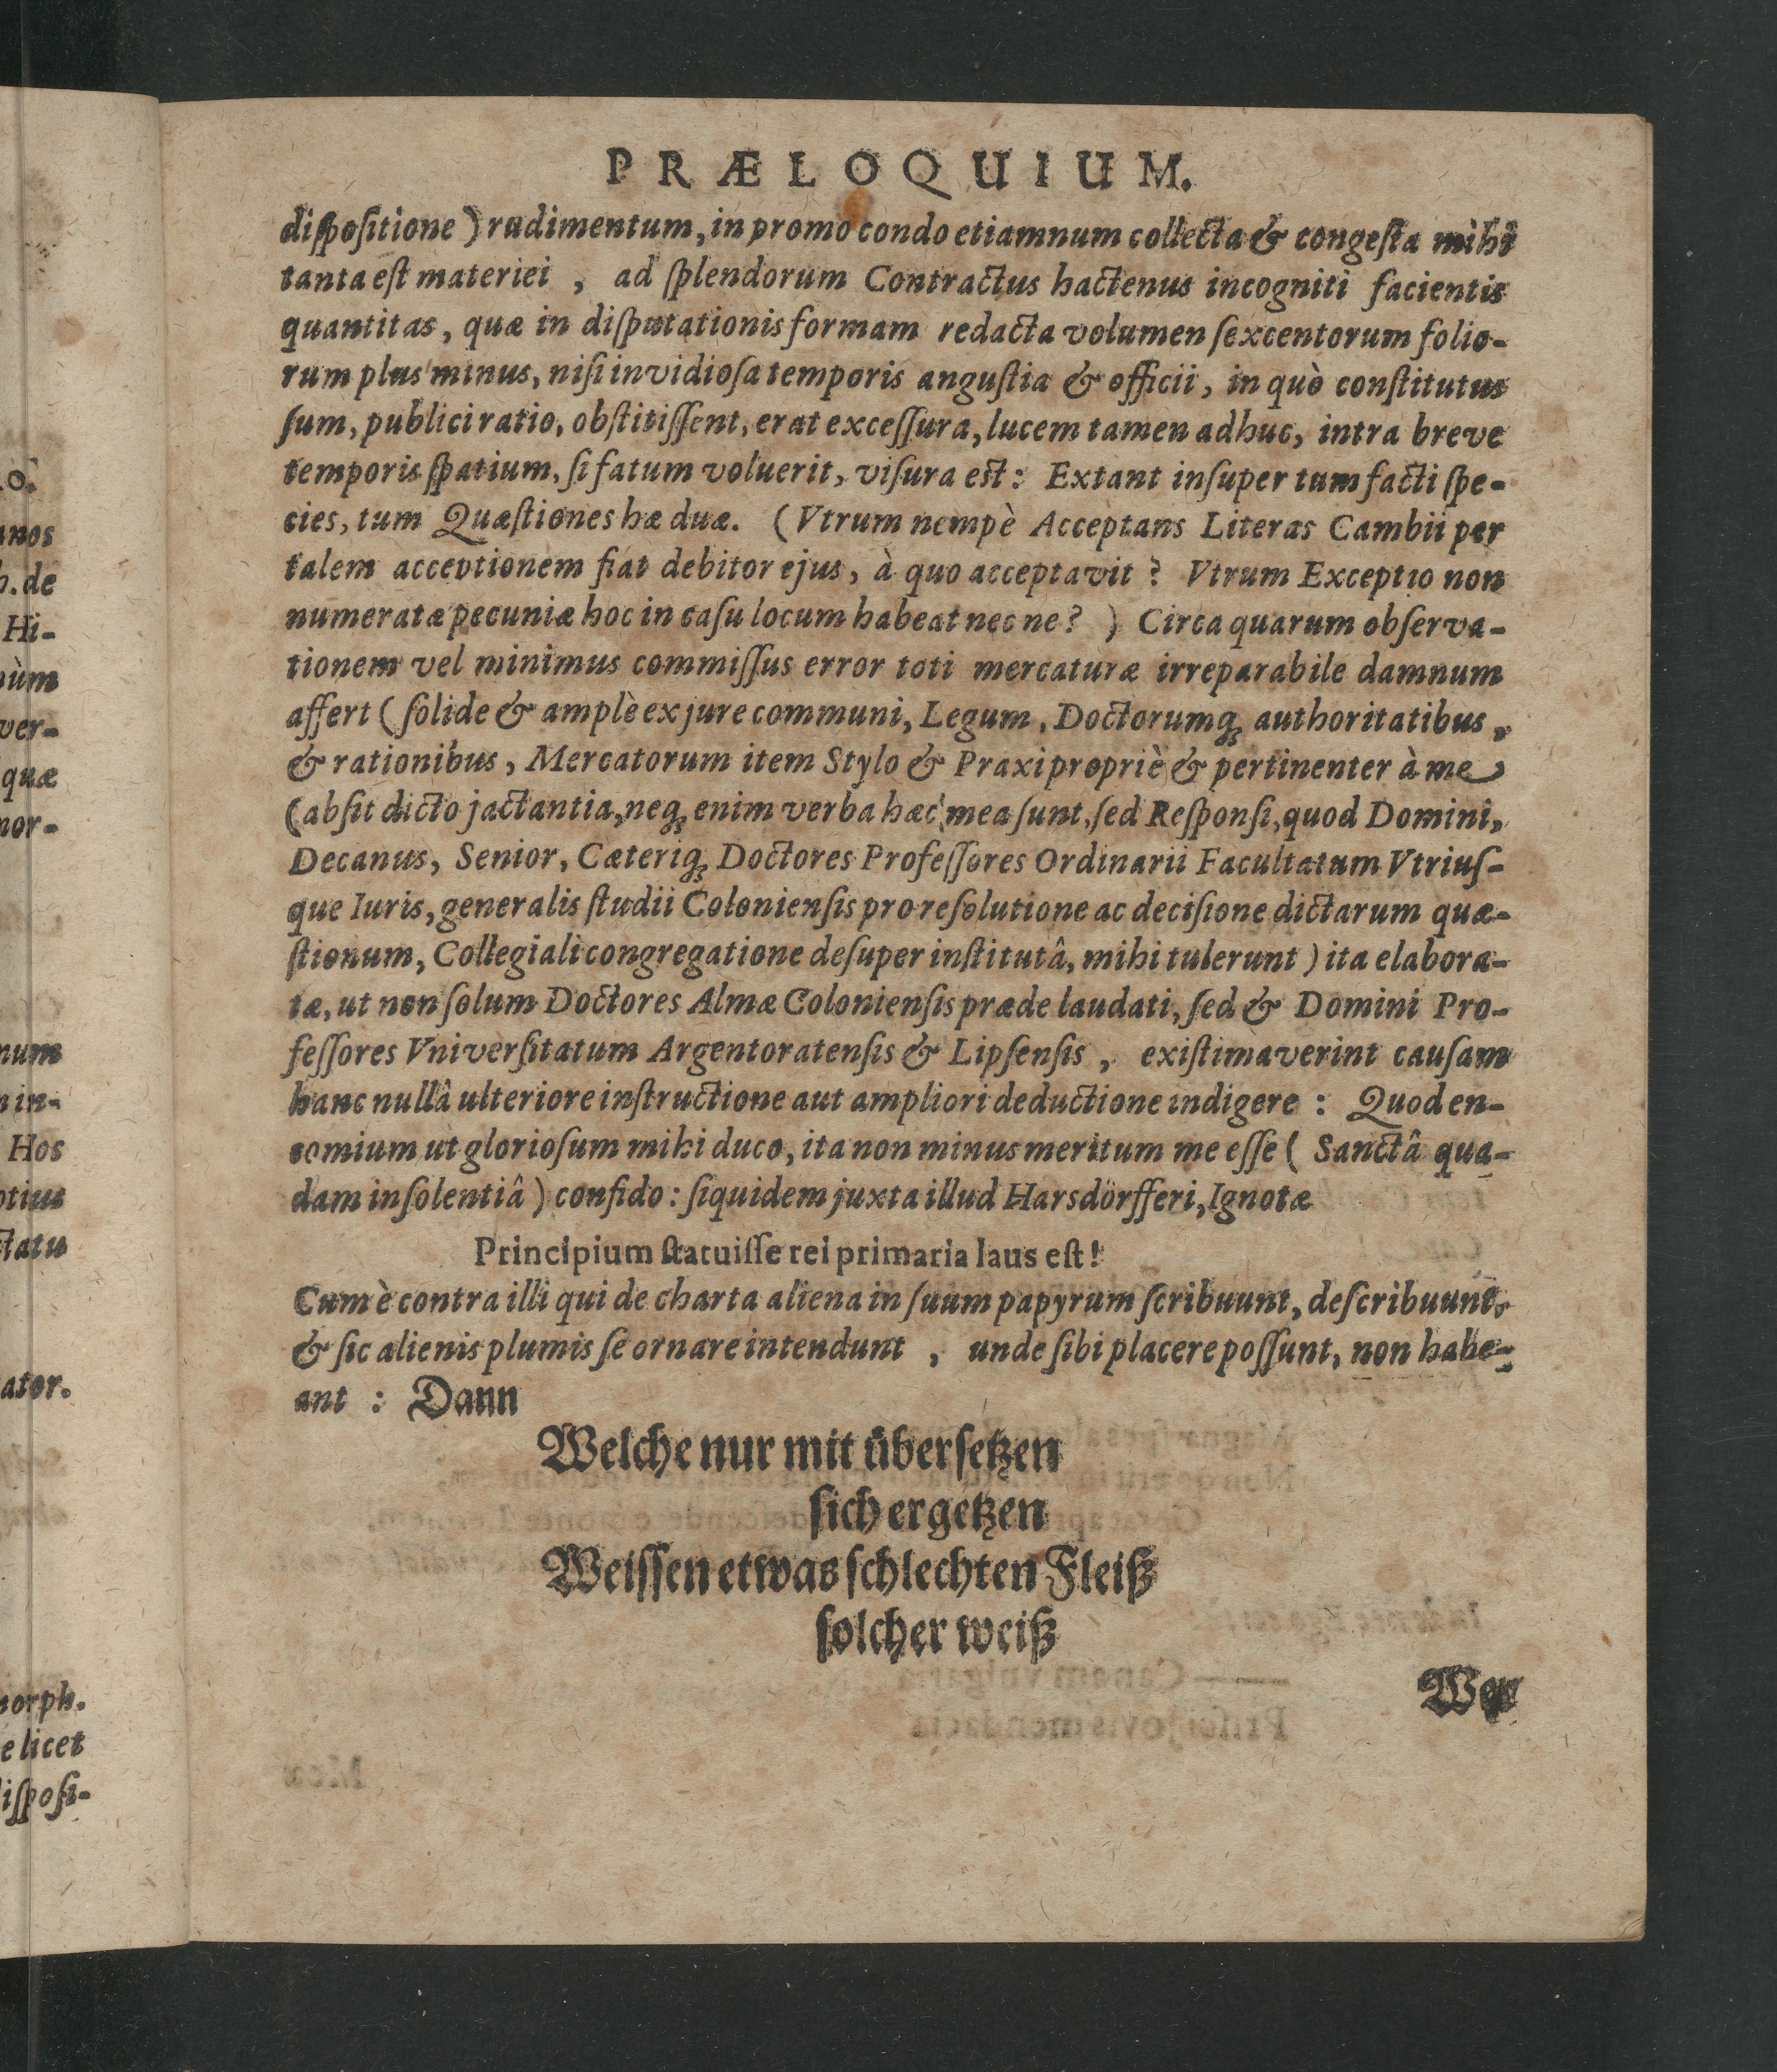 PRÆLOQUIUM.
diſpoſitione) rudimentum, in promo condo etiamnum collecta & congeſta mihi
tanta eſt materiei , ad ſplendorum Contractus hactenus incogniti facientis
quantitas, quæ in diſputationis formam redacta volumen ſexcentorum folio-
rum plus minus, niſi invidioſa temporis anguſtia & officii, in quò conſtitutus
ſum, publici ratio, obſtitiſſent, erat exceſſura, lucem tamen adhuc, intra breve
temporis ſpatium, ſi fatum voluerit, viſura eſt: Extant inſuper tum facti ſpe-
cies, tum Quæſtiones hæ duæ. (Vtrum nempè Acceptans Literas Cambii per
talem acceptionem fiat debitor ejus, à quo acceptavit? Vtrum Exceptio non
numeratæ pecuniæ hoc in caſu locum habeat nec ne? ) Circa quarum obſerva-
tionem vel minimus commiſſus error toti mercaturæ irreparabile damnum
affert (ſolide & amplè ex jure communi, Legum, Doctorumq; authoritatibus,
& rationibus, Mercatorum item Stylo & Praxi propriè & pertinenter à me
(abſit dicto jactantia, neq; enim verba hæc mea ſunt, ſed Reſponſi, quod Domini,
Decanus, Senior, Cæteriq; Doctores Profeſſores Ordinarii Facultatum Vtriuſ-
que Iuris, generalis ſtudii Colonienſis pro reſolutione ac deciſione dictarum quæ-
ſtionum, Collegiali congregatione deſuper inſtitutâ, mihi tulerunt) ita elabora-
tæ, ut non ſolum Doctores Almæ Colonienſis præde laudati, ſed & Domini Pro-
feſſores Vniverſitatum Argentoratenſis & Lipſenſis, exiſtimaverint cauſam
hanc nullâ ulteriore inſtructione aut ampliori deductione indigere : Quod en-
comium ut glorioſum mihi duco, ita non minus meritum me eſſe ( Sanctâ qua-
dam inſolentiâ) confido: ſiquidem juxta illud Harsdörfferi, Ignotæ
Principium ſtatuiſſe rei primaria laus eſt!
Cum è contra illi qui de charta aliena in ſuum papyrum ſcribuunt, deſcribuunt,
& ſic alienis plumis ſe ornare intendunt , unde ſibi placere poſſunt, non habe-
ant : Dann
Welche nur mit überſetzen
ſich ergetzen
Weiſſen etwas ſchlechten Fleiß
ſolcher weiß